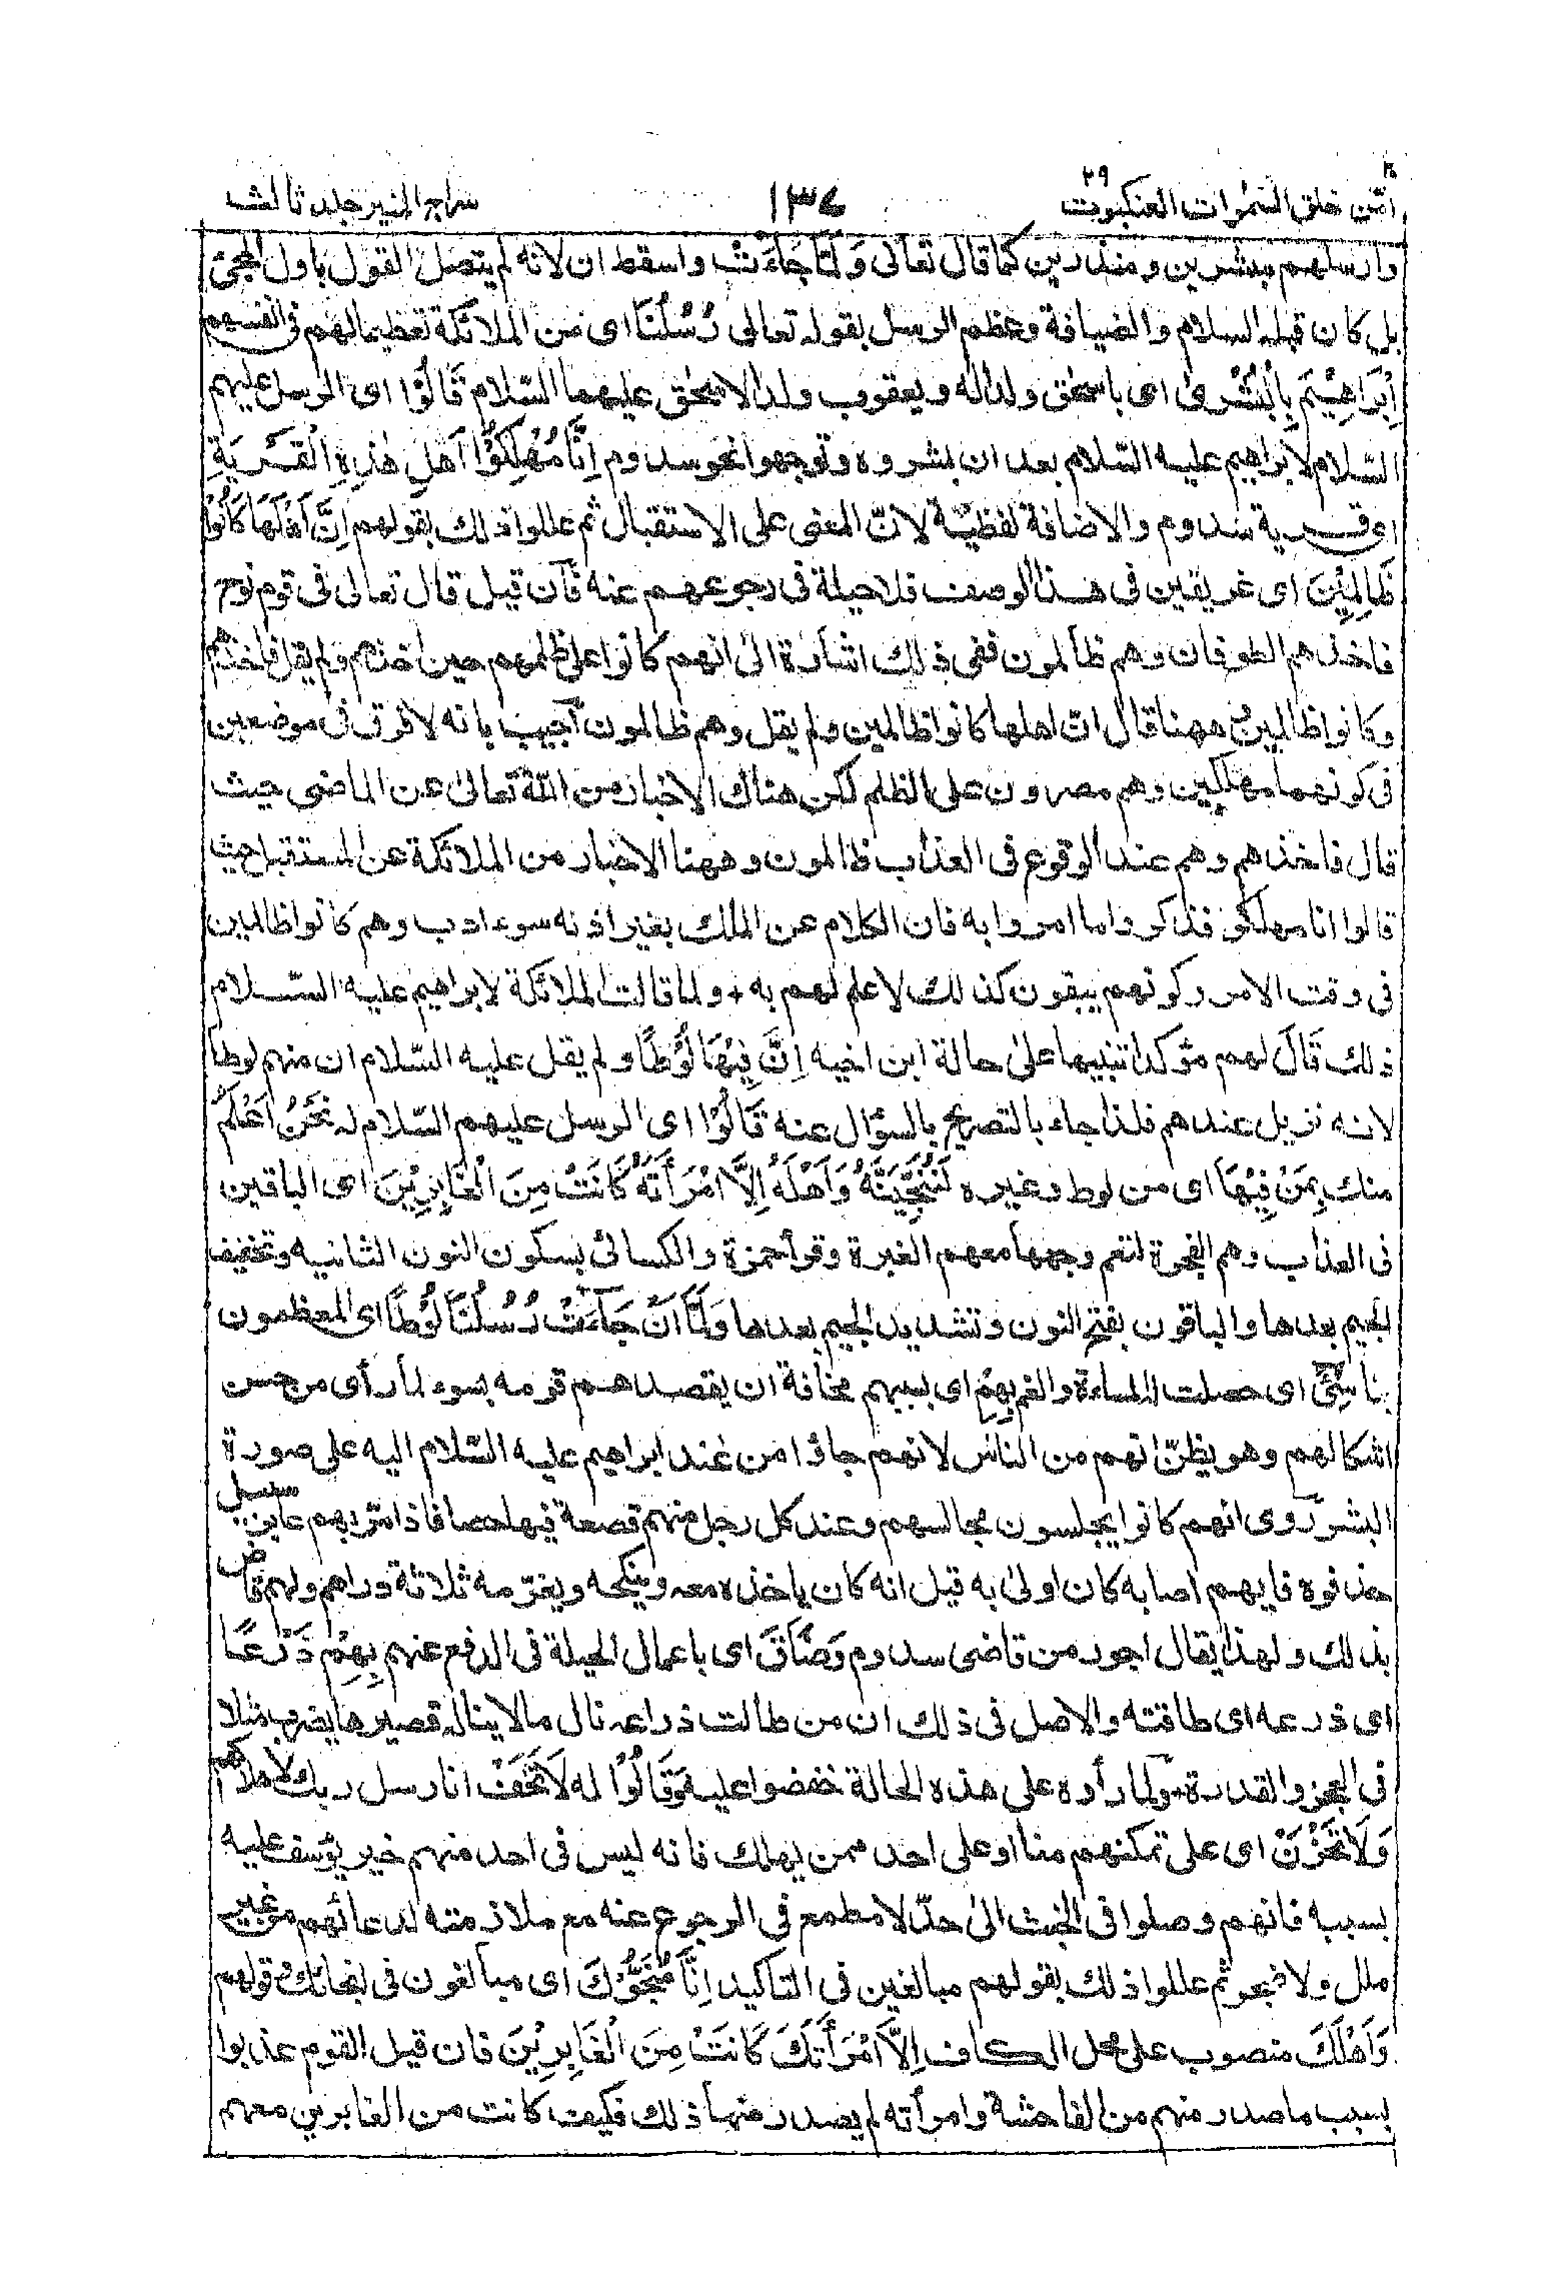 امّن خلق السموات العنكبوت ٢٩
١٣٧
سراج المنير جلد ثالث
وارسلهم مبشرين ومنذرين كما قال تعالى وَلَمَّا جَاءَتْ واسقط ان لانه لم يتصل القول باول المجئ
بل كان قبله السلام والضيافة وعظم الرسل بقوله تعالى رُسُلُنَا اى من الملائكة تعظيما لهم فى انفسهم
إِبْرَاهِيْمَ بِالْبُشْرٰى اى باسحٰق ولدا له ويعقوب ولدا لاسحٰق عليهما السّلام قَالُوْا اى الرسل عليهم
السّلام لابراهيم عليه السّلام بعد ان بشروه وتوجهوا نحو سدوم اِنَّا مُهْلِكُوْا اَهْلِ هٰذِهِ الْقَرْيَةِ
اى قرية سدوم والاضافة لفظيّة لانّ المعنى على الاستقبال ثم عللوا ذلك بقولهم اِنَّ اَهْلَهَا كَانُوْا
ظَالِمِيْنَ اى غريقين فى هذا الوصف فلا حيلة فى رجوعهم عنه فآن قيل قال تعالى فى قوم نوح
فاخذهم الطوفان وهم ظالمون ففى ذلك اشارة الى انهم كانوا على ظلمهم حين اخذهم ولم يقل فاخذهم
وكانوا ظالمين وههنا قال انّ اهلها كانوا ظالمين ولم يقل وهم ظالمون آجيب بانه لا فرق فى موضعين
فى كونهما مهلكين وهم مصرون على الظلم لكن هناك الاخبار من الله تعالىٰ عن الماضى حيث
قال فاخذهم وهم عند الوقوع فى العذاب ظالمون وههنا الاخبار من الملائكة عن المستقبل حيث
قالوا انا مهلكو فذكروا ما امروا به فان الكلام عن الملك بغير اذنه سوء ادب وهم كانوا ظالمين
فى وقت الامر وكونهم يبقون كذلك لا علم لهم به + ولما قالت الملائكة لابراهيم عليه السّلام
ذلك قَالَ لهم مؤكدا تنبيها علىٰ حالة ابن اخيه اِنَّ فِيْهَا لُوْطًا ولم يقل عليه السّلام ان منهم لوطا
لانه نزيل عندهم فلذا جاء بالتصريح بالسؤال عنه قَالُوْا اى الرسل عليهم السّلام له نَحْنُ اَعْلَمُ
منك بِمَنْ فِيْهَا اى من لوط وغيره لَنُنَجِّيَنَّهُ وَاَهْلَهُ اِلَّا امْرَأَتَهُ كَانَتْ مِنَ الْغَابِرِيْنَ اى الباقين
فى العذاب وهم الفجرة لتعم وجهها معهم الغبرة وقرأ حمزة والكسائى بسكون النون الثانيه وتخفيف
الجيم بعدها والباقون بفتح النون وتشديد الجيم بعدها وَلَمَّا اَنْ جَاءَتْ رُسُلُنَا لُوْطًا اى المعظمون
بنا سِيْئَ اى حصلت له المساءة والغم بِهِمْ اى بسببهم مخافة ان يقصدهم قومه بسوء لما رأى من حسن
اشكالهم وهو يظنّ انهم من الناس لانهم جاؤا من عند ابراهيم عليه السّلام اليه على صورة
البشر روى انهم كانوا يجلسون مجالسهم وعند كل رجل منهم قصعة فيها حصا فاذا مرّ بهم عابر سبيل
حذفوه فايهم اصابه كان اولىٰ به قيل انه كان ياخذه معه وينكحه ويغرّمه ثلاثة دراهم ولهم قاض
بذلك ولهذا يقال اجور من قاضى سدوم وَضَاقَ اى باعمال الحيلة فى الدفع عنهم بِهِمْ ذَرْعًا
اى ذرعه اى طاقته والاصل فى ذلك ان من طالت ذراعه نال ما لا يناله قصيرها يضرب مثلا
فى العجز والقدرة ولما رأوه على هذه الحالة خفضوا عليه وَقَالُوْا له لَا تَخَفْ انا رسل ربك لاهلاكهم
وَلَا تَحْزَنْ اى على تمكنهم منا او على احد ممن يهلك فانه ليس فى احد منهم خير يؤسف عليه
بسببه فانهم وصلوا فى الخبث الىٰ حدّ لا مطمع فى الرجوع عنه مع ملازمته لدعائهم من غير
ملل ولا ضجر ثم عللوا ذلك بقولهم مبالغين فى التاكيد اِنَّا مُنَجُّوْكَ اى مبالغون فى انجائك وقولهم
وَاَهْلَكَ منصوب على محل الكاف اِلَّا امْرَأَتَكَ كَانَتْ مِنَ الْغَابِرِيْنَ فان قيل القوم عذبوا
بسبب ما صدر منهم من الفاحشة وامرأته لم يصدر منها ذلك فكيف كانت من الغابرين معهم